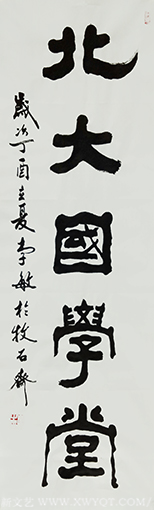 北大國學堂
歲次丁酉立夏李敏於牧石齋
新文艺 WWW.XWYQT.COM